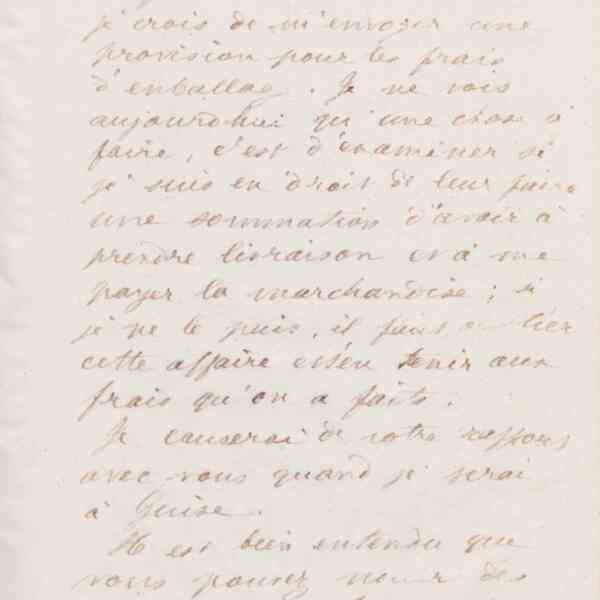 je crois de m'envoyer une
provision pour les frais
d'enballag. Je ne vois
aujourd'hui qu'une chose à
faire, c'est d'examiner si
je suis en droit de leur faire
une sommation d'avoir à
prendre livraison et à me
payer la marchandise ; si
je ne le puis, il faut
cette affaire et s'en tenir aux
frais qu'on a faits.
Je causerai de votre rapport
avec vous quand je serai
à Guise.
Il est bien entendu que
vous pouvez des